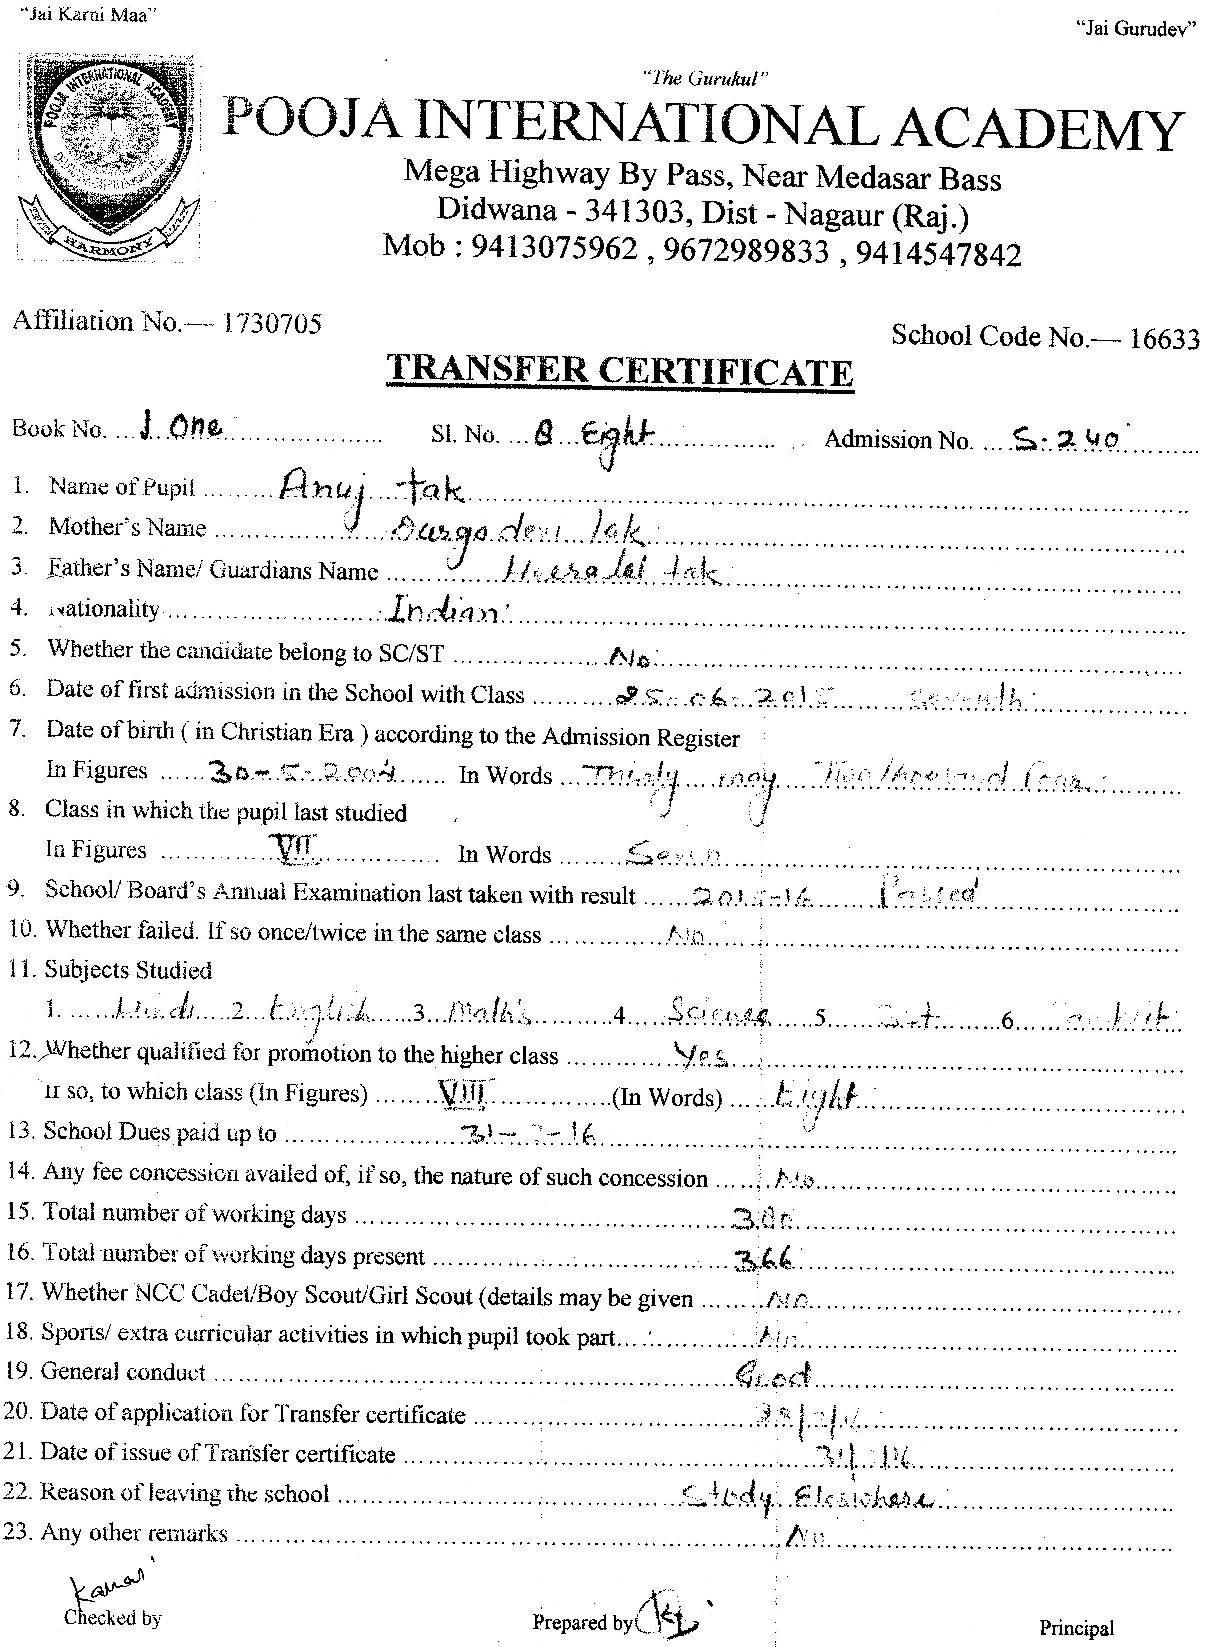 "Jai Karni Maa"
"Jai Gurudev"
POOJA INTERNATIONAL ACADEMY
HARMONY
"The Gurukul"
POOJA INTERNATIONAL ACADEMY
Mega Highway By Pass, Near Medasar Bass
Didwana - 341303, Dist - Nagaur (Raj.)
Mob : 9413075962 , 9672989833 , 9414547842
Affiliation No.— 1730705
School Code No.— 16633
TRANSFER CERTIFICATE
Book No. 1 One Sl. No. 8 Eight Admission No. S-240
1. Name of Pupil Anuj tak
2. Mother's Name Durga devi Tak
3. Father's Name/ Guardians Name Heera lal tak
4. Nationality Indian
5. Whether the candidate belong to SC/ST No
6. Date of first admission in the School with Class 25-06-2015 Seventh
7. Date of birth ( in Christian Era ) according to the Admission Register
In Figures 30-5-2004 In Words Thirty may Two thousand four
8. Class in which the pupil last studied
In Figures VII In Words Seven
9. School/ Board's Annual Examination last taken with result 2015-16 Passed
10. Whether failed. If so once/twice in the same class No
11. Subjects Studied
1. Hindi 2. English 3. Maths 4. Science 5. S.st 6. Sanskrit
12. Whether qualified for promotion to the higher class Yes
If so, to which class (In Figures) VIII (In Words) Eight
13. School Dues paid up to 31- -16
14. Any fee concession availed of, if so, the nature of such concession No
15. Total number of working days
16. Total number of working days present 366
17. Whether NCC Cadet/Boy Scout/Girl Scout (details may be given No
18. Sports/ extra curricular activities in which pupil took part No
19. General conduct Good
20. Date of application for Transfer certificate
21. Date of issue of Transfer certificate
22. Reason of leaving the school Study Elsewhere
23. Any other remarks No
Checked by Prepared by Principal